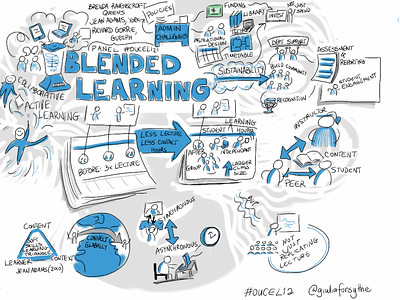 BRENDA RAVENSCROFT
QUEENS
JEAN ADAMS, YORK
RICHARD GORRIE,
GUELPH
PANEL #OUCEL12
BLENDED
LEARNING
POLICIES
ADMIN
CHALLENGES
FUNDING
LIBRARY
INSTRUCTIONAL
DESIGN
TIMETABLE
INVEST
NOT JUST
SPEND
SUSTAINABILITY
DEPT SUPPORT
BUILD COMMUNITY
RECOGNITION
ASSESSMENT
&
REPORTING
STUDENT
ENGAGEMENT
COLLABORATIVE
ACTIVE
LEARNING
BEFORE: 3X LECTURE
LESS LECTURE
LESS CONTACT
HOURS
LEARNING
STUDENT HOURS
AFTER
INDEPENDENT
GROUP
LARGER
CLASS
SIZE
INSTRUCTOR
CONTENT
STUDENT
PEER
CONTENT
SOFT
SKILLS
LEARNING
TRIANGLE
LEARNER
CONTEXT
JEAN ADAMS (2010)
2)
CONNECT
GLOBALLY
SYNCHRONOUS
ASYNCHRONOUS
NOT
JUST
REPLICATING
LECTURE
#OUCEL12
@giuliaforsythe